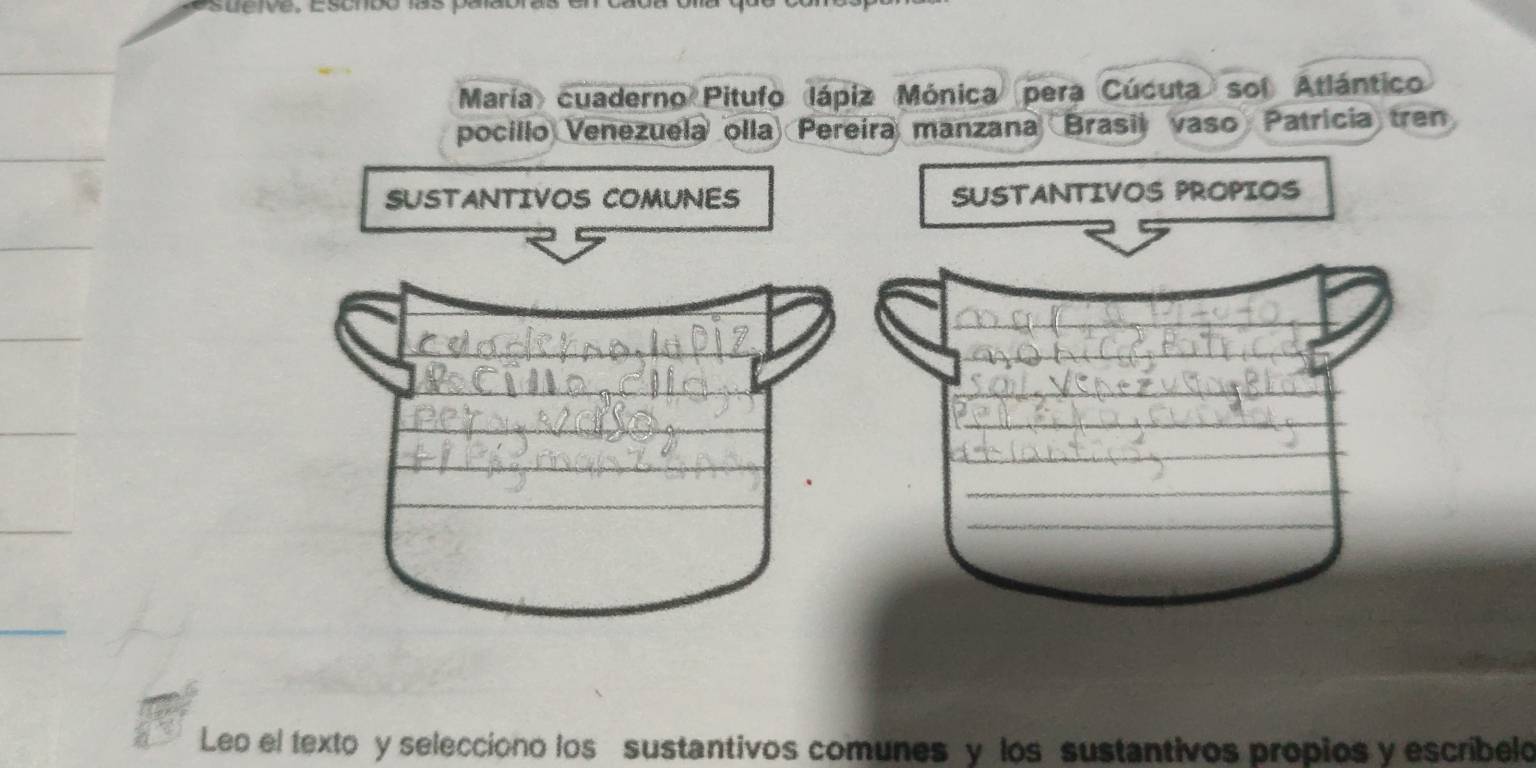 Resuelve. Escribo las palabras en cada olla que corresponda.
María cuaderno Pitufo lápiz Mónica pera Cúcuta sol Atlántico
pocillo Venezuela olla Pereira manzana Brasil vaso Patricia tren
SUSTANTIVOS COMUNES
cuaderno, lapiz,
Pocillo, olla,
pera, vaso,
manzana,
SUSTANTIVOS PROPIOS
maria Pitufo,
monica, Patricia
sol, venezuela,
atlantico,
Leo el texto y selecciono los sustantivos comunes y los sustantivos propios y escríbelo